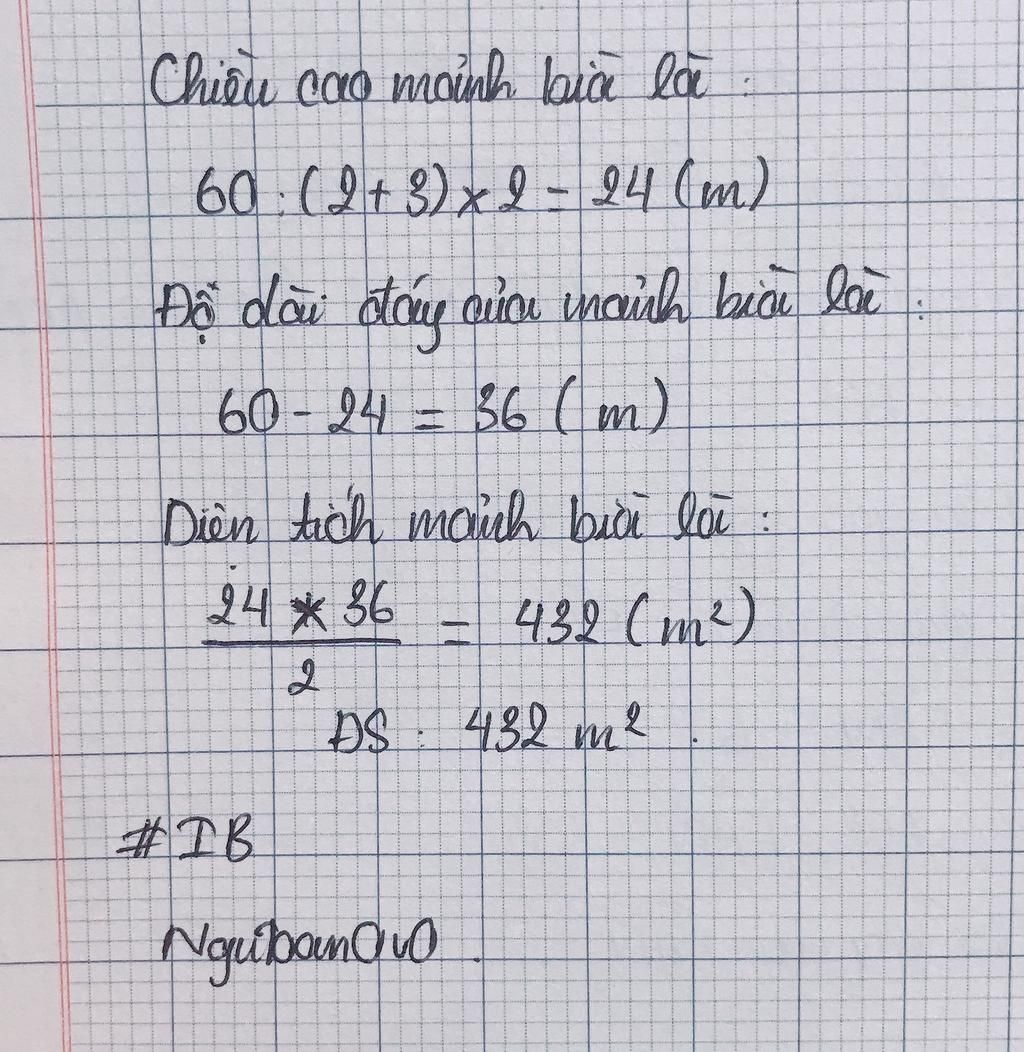 Chiều cao mảnh bìa là :
60 : (2+3) × 2 = 24 (m)
Độ dài đáy của mảnh bìa là :
60 - 24 = 36 (m)
Diện tích mảnh bìa là :
24 * 36
= 432 (m²)
2
ĐS : 432 m² .
# IB
NguibanOvO .